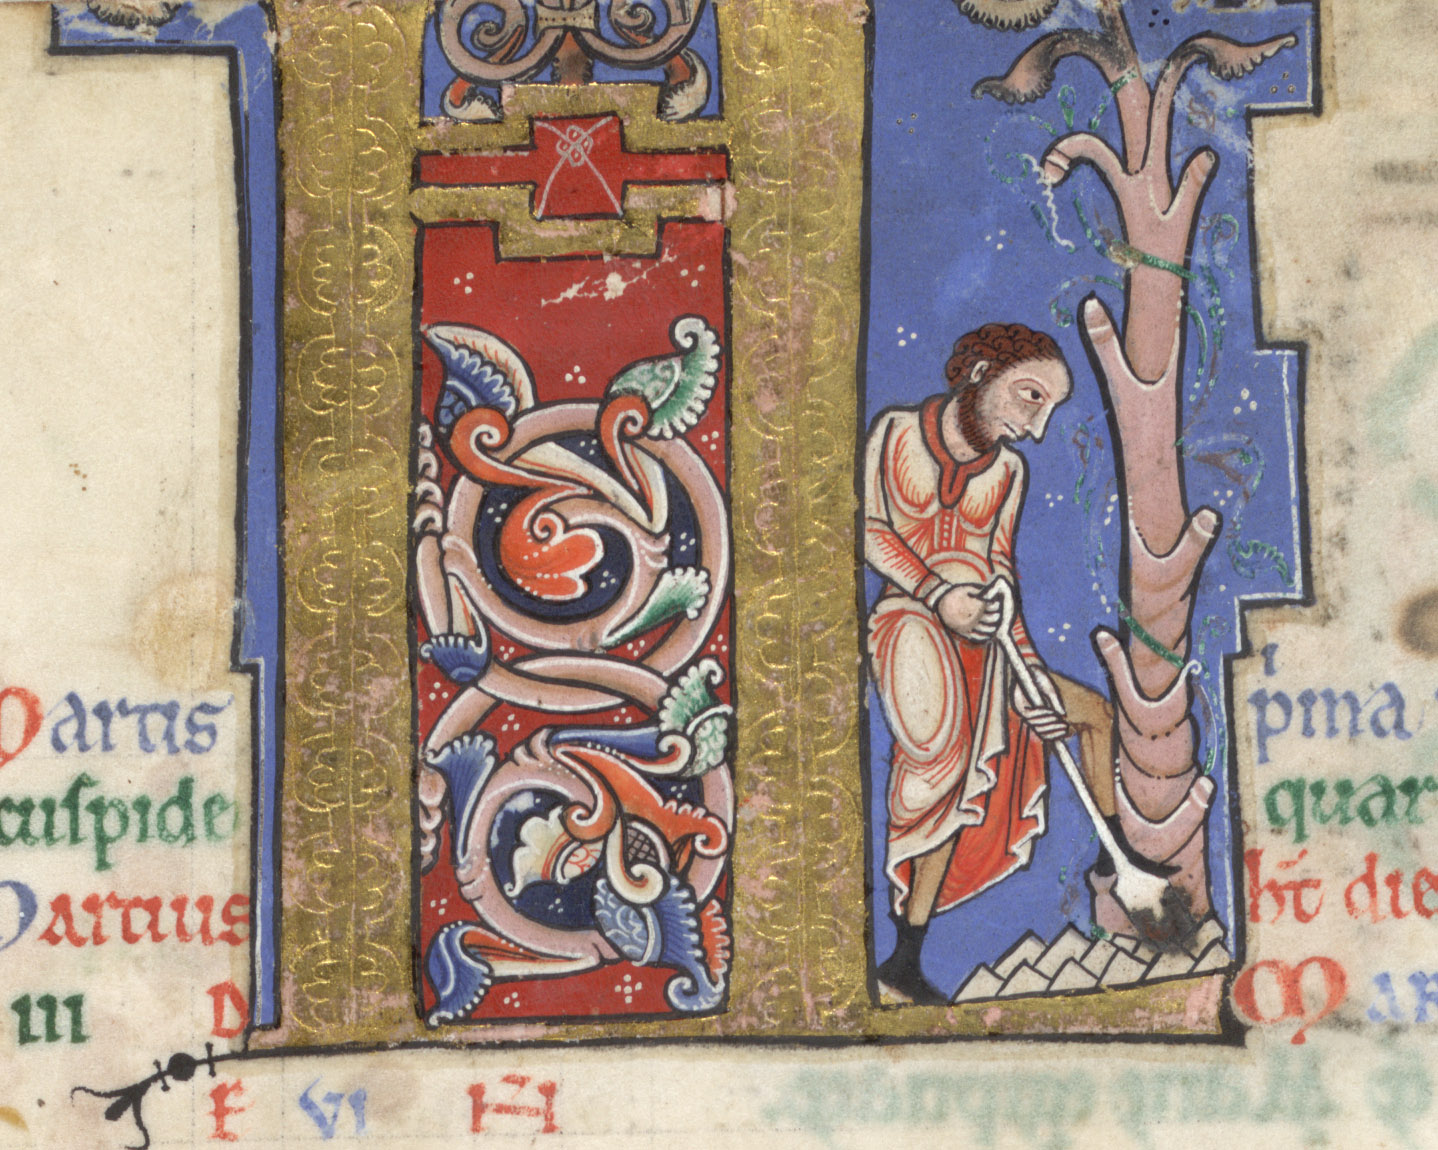 Martis
cuspide
Martius
III D
F VI H
i
pma
quar
ht die
MAR